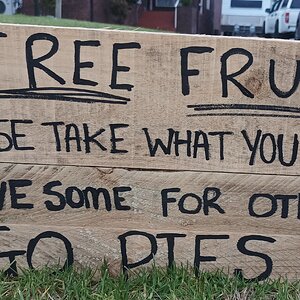 FREE FRU
SE TAKE WHAT YOU
VE SOME FOR OTH
GO PIES